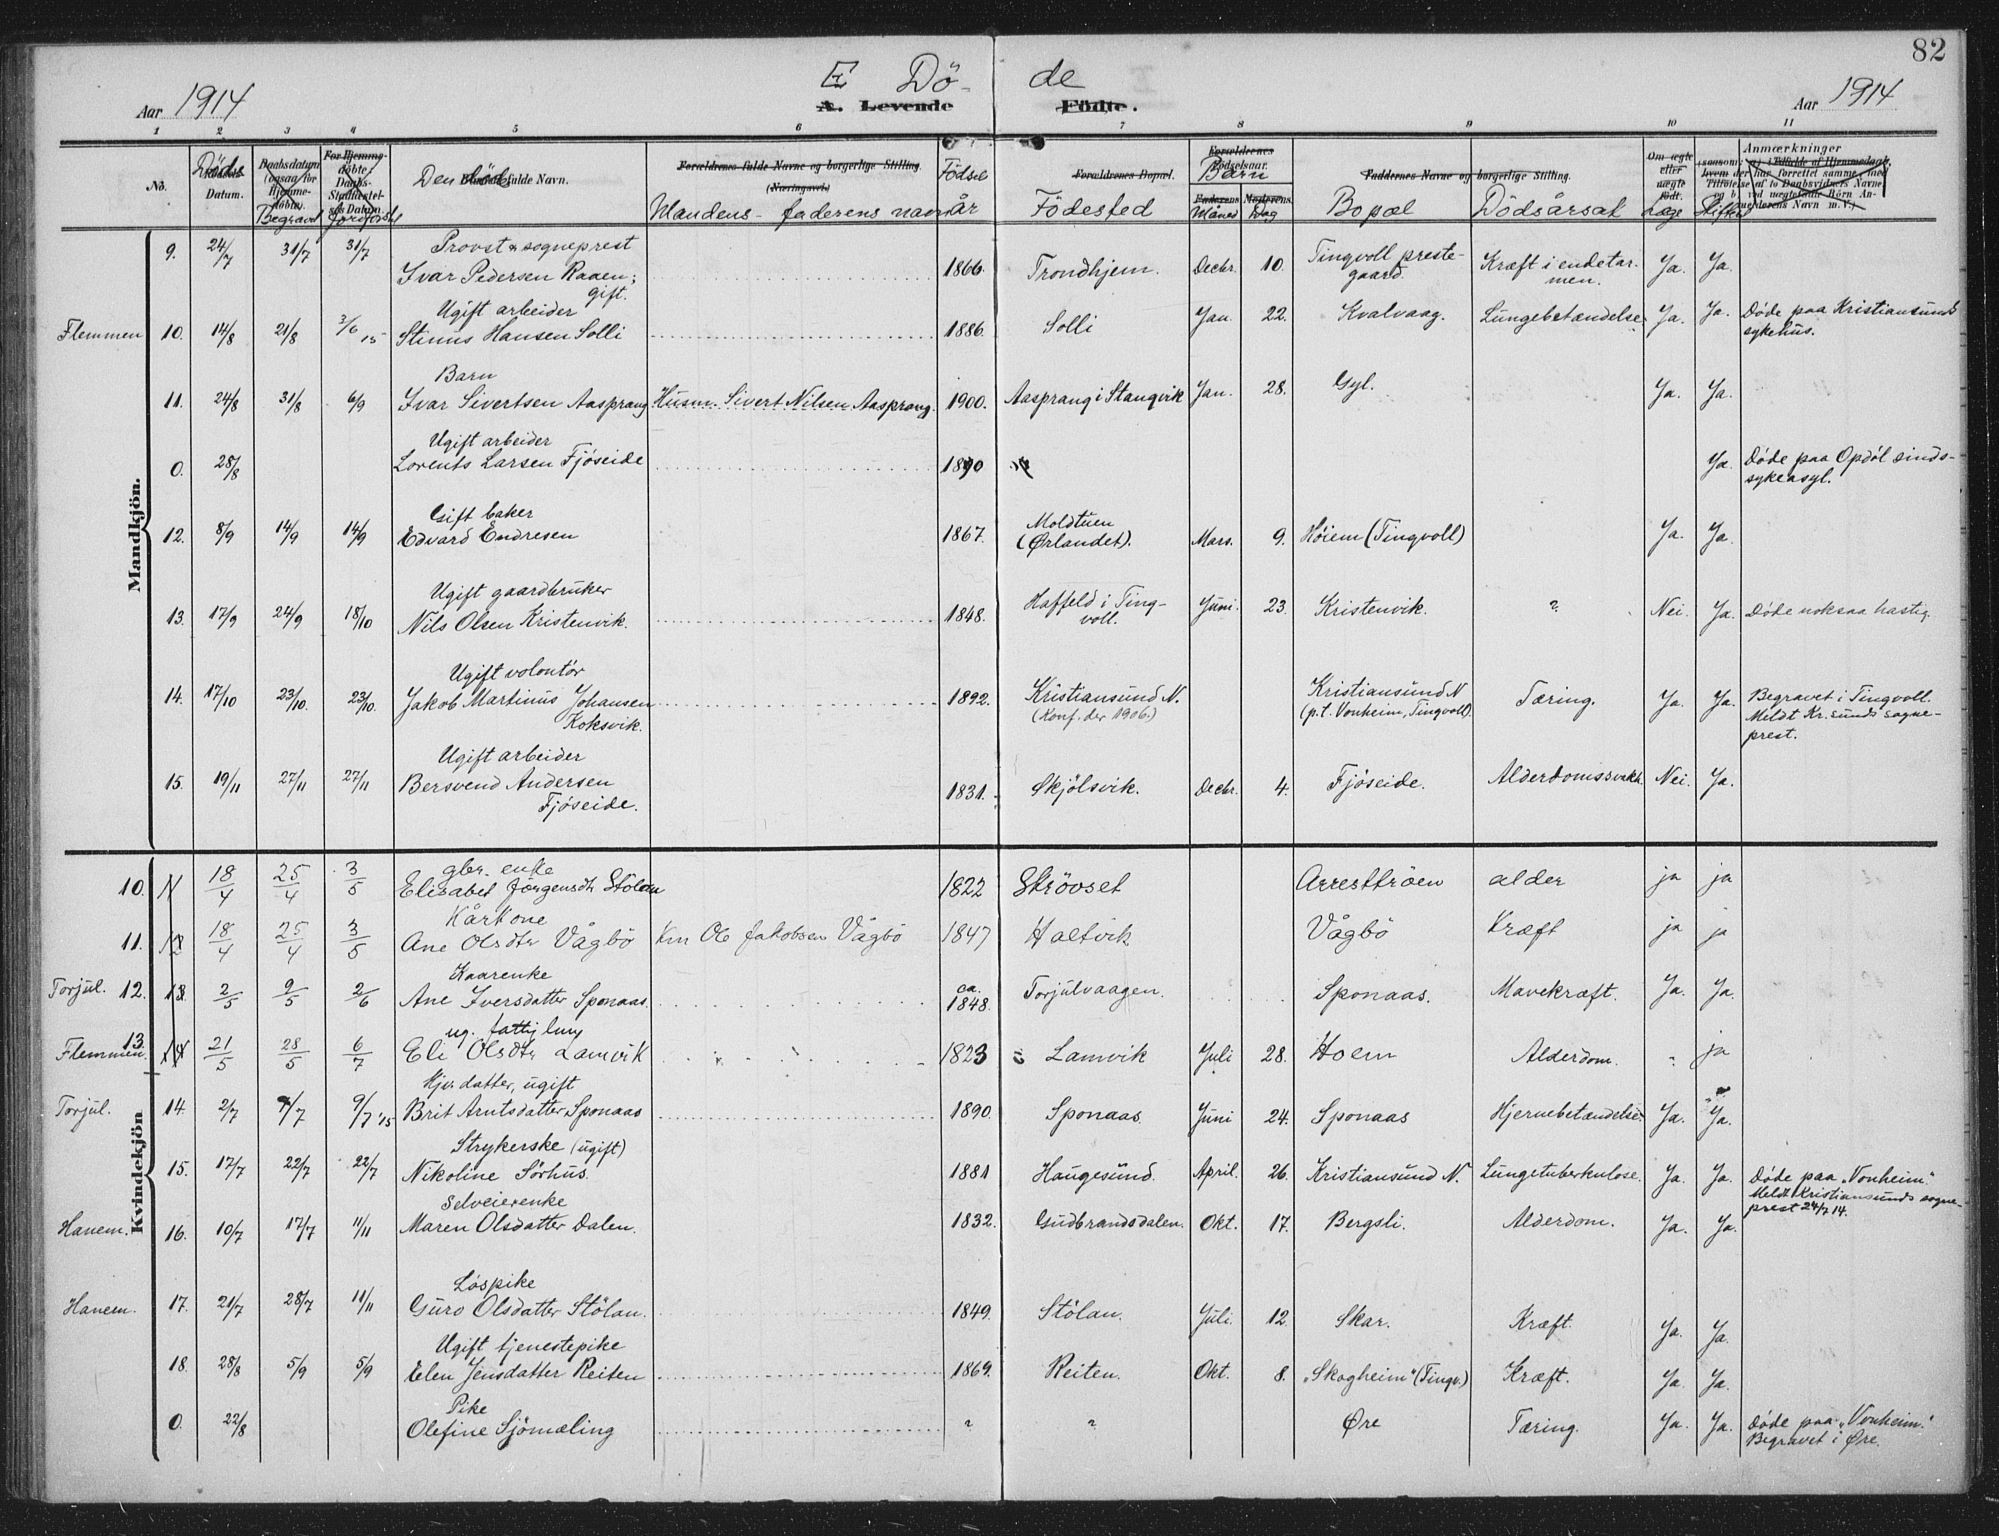 82
E Dö- de
Aar 1914 A. Levende Födte. Aar 1914
1 2 3 4 5 6 7 8 9 10 11
No. Döds Datum. Daabsdatum (ogsaa for Hjemmedöbte). Begravet For Hjemmedöbte: Daabs-Stadfæstelses Datum. Jordfæstet Den döde fulde Navn. Forældrenes fulde Navne og borgerlige Stilling (Næringsvei) Mandens - faderens navn Födsel år Forældrenes Bopæl. Födested Forældrenes Födselsaar. Barn Faderens Måned Moderens Dag Faddernes Navne og borgerlige Stilling. Bopæl Dödsårsak Om ægte eller uægte födt. Læge Skifte Anmærkninger
Mandkjön.
9. 24/7 31/7 31/7 Provst & sogneprest
Ivar Pedersen Raaen; gift. 1866. Trondhjem. Decbr. 10. Tingvoll prestegaard. Kræft i endetarmen. Ja. Ja.
Flemmen 10. 14/8 21/8 3/6 15 Ugift arbeider
Stinus Hansen Solli 1886. Solli Jan. 22. Kvalvaag. Lungebetændelse. Ja. Ja. Døde paa Kristiansunds sykehus.
11. 24/8 31/8 6/9 Barn
Ivar Sivertsen Aasprang Husm. Sivert Nilsen Aasprang. 1900. Aasprang i Stangvik Jan. 28. Gyl. Ja. Ja.
0. 28/8 Ugift arbeider
Lorents Larsen Fjöseide Ja. Døde paa Opdöl sindssykeasyl.
12. 8/9 14/9 14/9 Gift baker
Edvard Endresen 1867. Moldtuen (Ørlandet). Mars. 9. Höiem (Tingvoll) Ja. Ja.
13. 17/9 24/9 18/10 Ugift gaardbruker
Nils Olsen Kristenvik. 1848. Haffeld i Tingvoll. Juni. 23. Kristenvik. ? Nei. Ja. Døde noksaa hastig.
14. 17/10 23/10. 23/10. Ugift volontör
Jakob Martinus Johansen Koksvik. 1892. Kristiansund N. (Konf. der 1906.) Kristiansund N (p.t. Vonheim, Tingvoll). Tæring. Ja. Ja. Begravet i Tingvoll. Meldt Kr.sunds sogneprest.
15. 19/11 27/11 27/11 Ugift arbeider
Bersvend Andersen Fjöseide. 1831. Økjölsvik. Decbr. 4. Fjöseide. Alderdomssvakh. Nei. Ja.
Kvindekjön
10. 18/4 25/4 3/5 gbr. enke
Elisabet Jørgensdtr Stölan 1822 Strövset Arresttröen alder ja ja
11. 18/4 25/4 3/5 Kårkone
Ane Olsdtr Vågbö Km Ole Jakobsen Vågbö 1847 Holtvik Vågbö Kræft ja ja
Torjul. 12. 2/5 9/5 2/6 Kaarenke
Ane Iversdatter Sponaas. ca. 1848. Torjulvaagen. Sponaas. Mavekræft. Ja. Ja.
Flemmen. 13. 21/5 28/5 6/7 ug. fattiglem
Eli Olsdtr Lamvik 1823 Lamvik Juli 28. Hoem Alderdom. ja
Torjul. 14. 2/7 7/7 9/7 '15 Hjv. datter, ugift
Brit Arntsdatter Sponaas 1890. Sponaas. Juni 24. Sponaas Hjernebetændelse. Ja. Ja.
15. 17/7 22/7 22/7 Strykerske (ugift)
Nikoline Sörhus. 1881 Haugesund. April. 26. Kristiansund N. Lungetuberkulose. Ja. Ja. Døde paa "Vonheim." Meldt Kristiansunds sogneprest 24/7 14.
Hanem. 16. 10/7 17/7 11/11 Selveierenke
Maren Olsdatter Dalen. 1832. Gudbrandsdalen. Okt. 17. Bergsli. Alderdom. Ja. Ja.
Hanem. 17. 21/7 28/7 11/11 Löspike
Guro Olsdatter Stölan. 1849. Stölan. Juli. 12. Skar. Kræft. Ja. Ja.
18. 28/8 5/9 5/9 Ugift tjenestepike
Elen Jensdatter Reiten 1869. Reiten. Okt. 8. "Skogheim" (Tingv.) Kræft. Ja. Ja.
0. 22/8 Pike
Olefine Sjömæling ? ? Øre Tæring. Ja. Ja. Døde paa "Vonheim." Begravet i Øre.